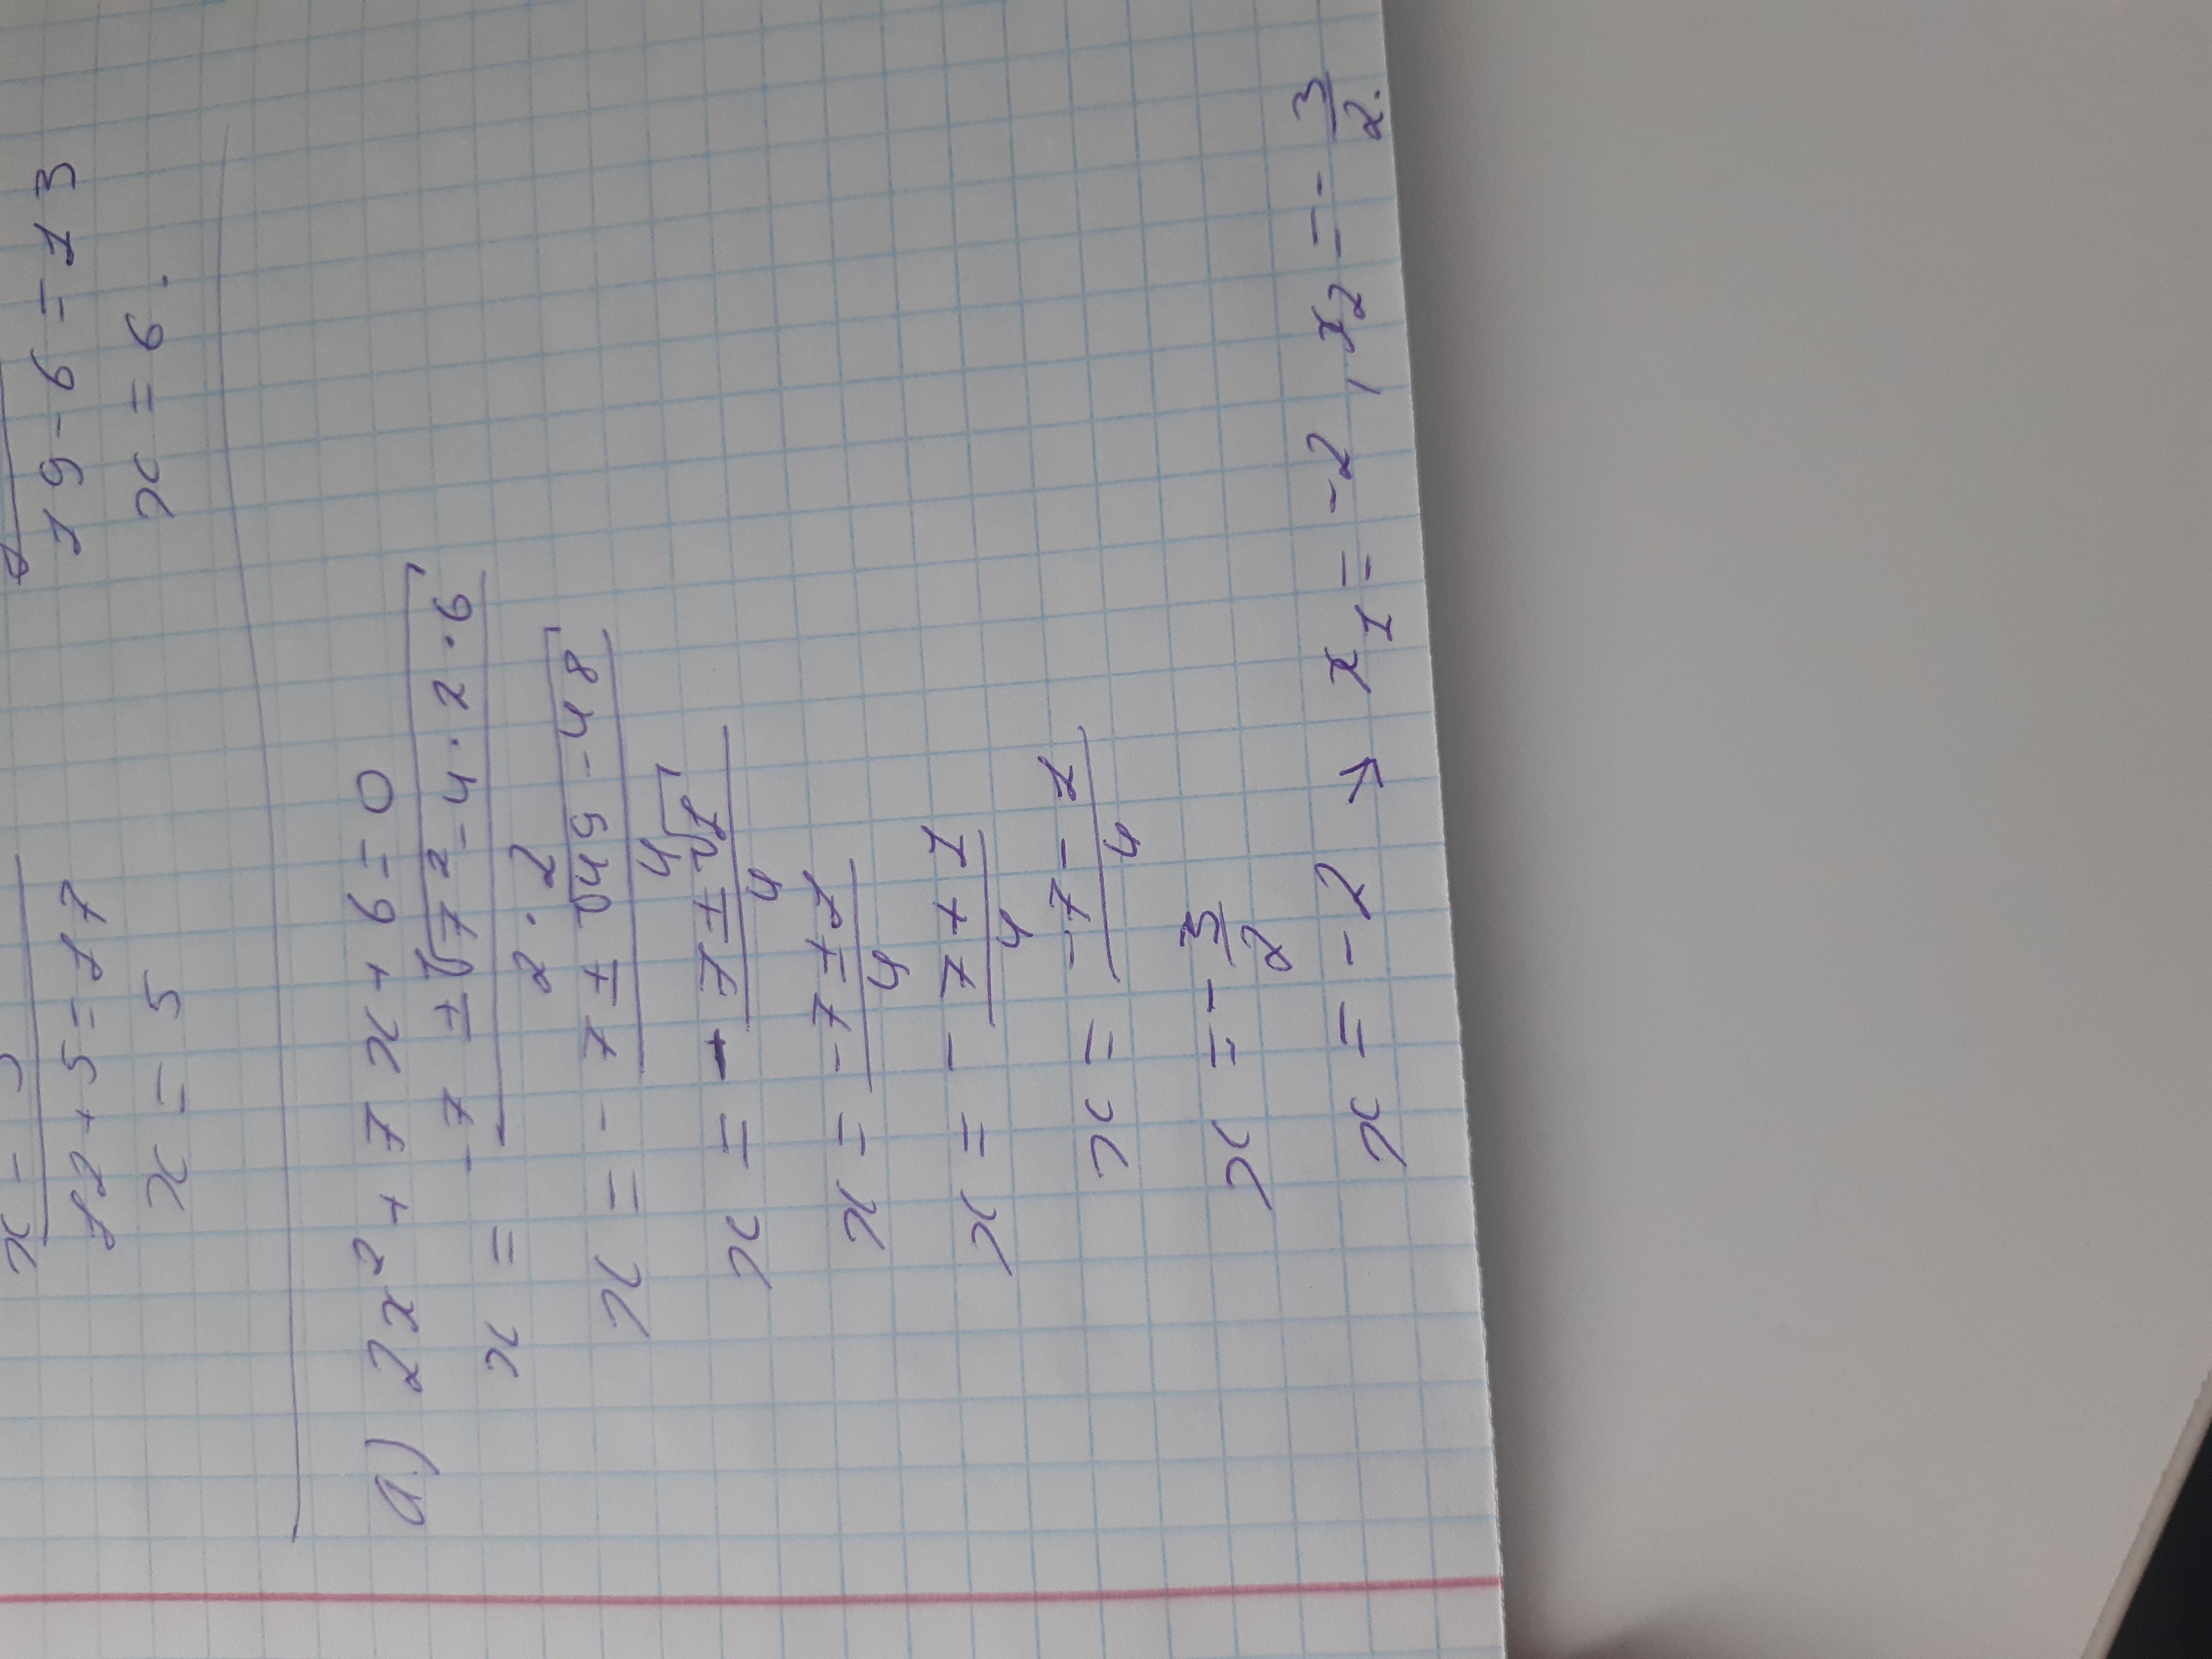 12 + 5 = 17
x = 5
19 - 6 = 13
x = 6.
a) 2x² + 7x + 6 = 0
x = (-7 ± √(7² - 4·2·6))/(2·2)
x = (-7 ± √(49 - 48))/4
x = (-7 ± √1)/4
x = (-7 ± 1)/4
x = (-7 + 1)/4
x = (-7 - 1)/4
x = -3/2
x = -2 → x₁ = -2, x₂ = -3/2.